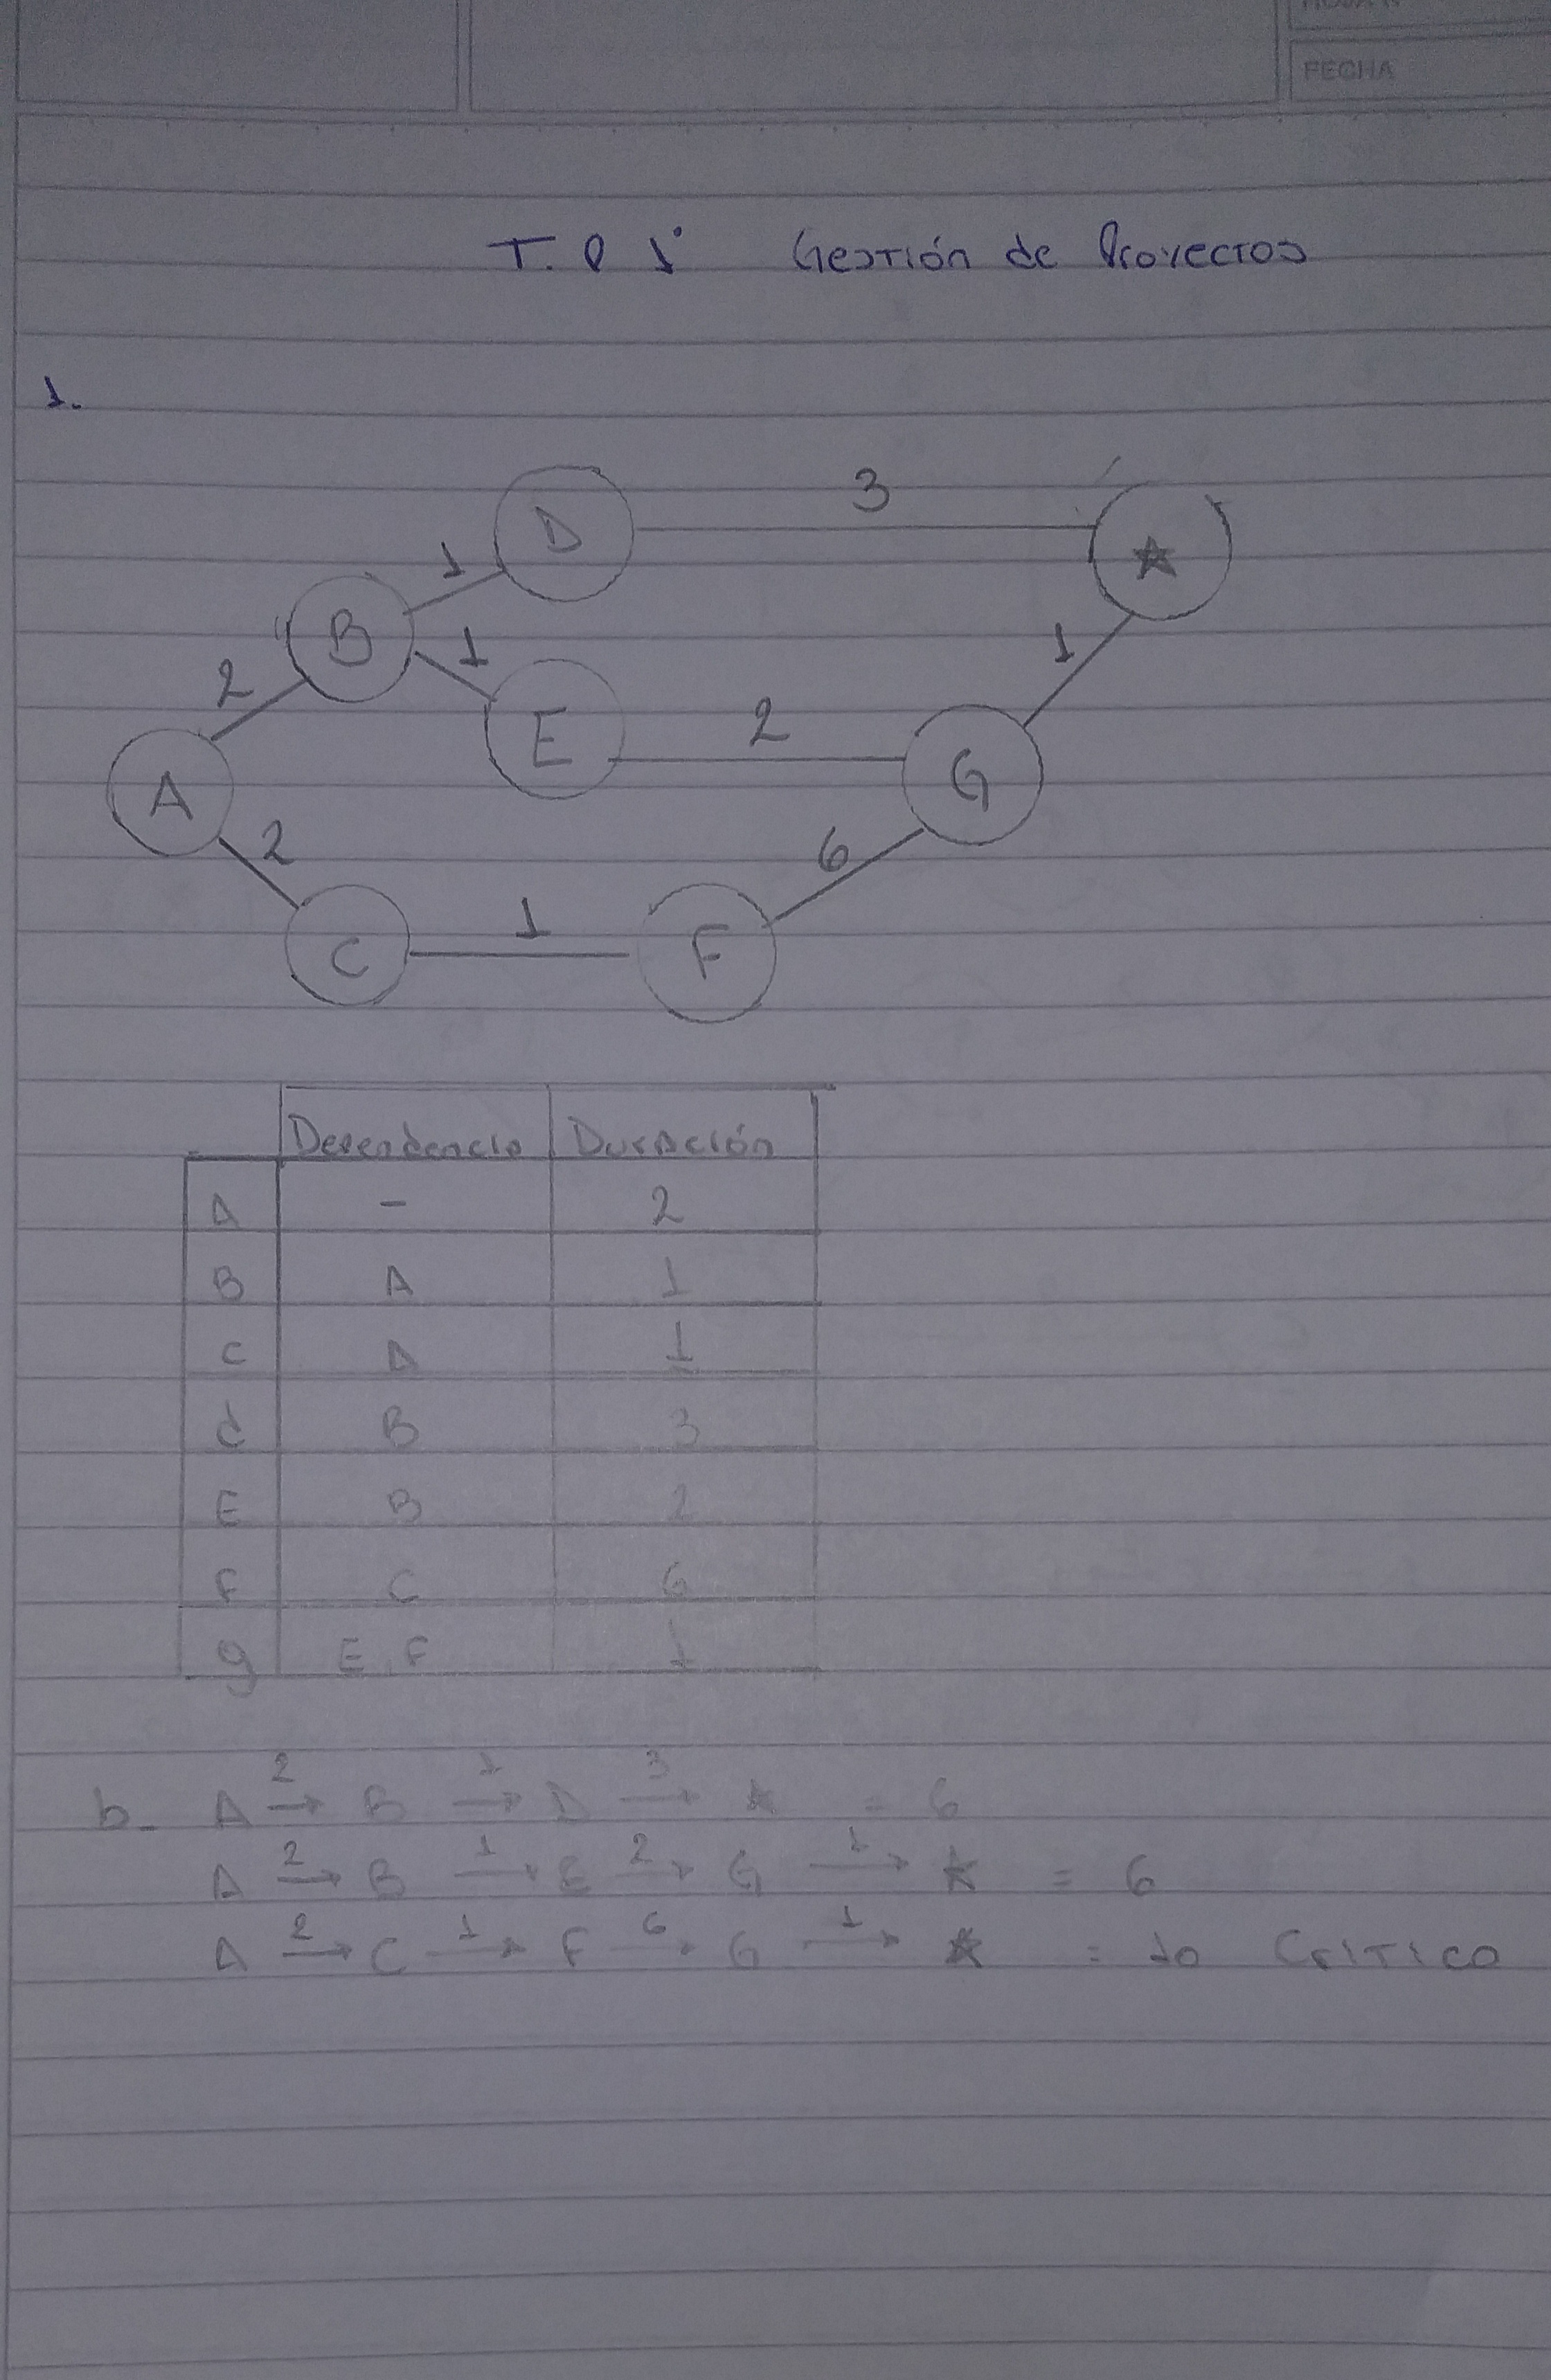 FECHA
T.P 1° Gestión de Proyectos
1.
3
D
1
B
1
2
E
2
1
G
A
2
6
C
1
F
Dependencia Duración
A - 2
B A 1
C A 1
d B 3
E B 2
F C 6
g E, F 1
b- A 2→ B 1→ D 3→ ★ = 6
A 2→ B 1→ E 2→ G 1→ ★ = 6
A 2→ C 1→ F 6→ G 1→ ★ = 10 Crítico